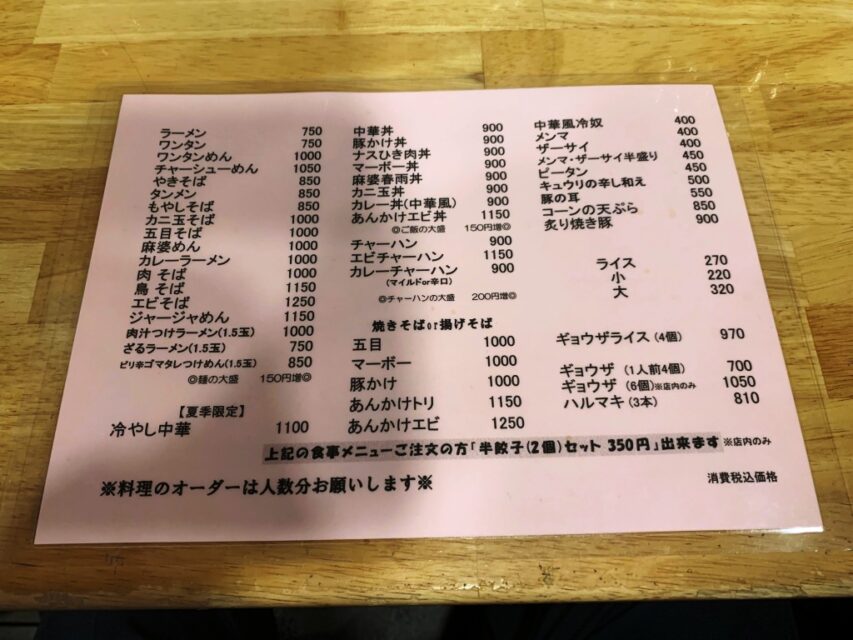 ラーメン 750
ワンタン 750
ワンタンめん 1000
チャーシューめん 1050
やきそば 850
タンメン 850
もやしそば 850
カニ玉そば 1000
五目そば 1000
麻婆めん 1000
カレーラーメン 1000
肉そば 1000
鳥そば 1150
エビそば 1250
ジャージャめん 1150
肉汁つけラーメン(1.5玉) 1000
ざるラーメン(1.5玉) 750
ピリ辛ゴマタレつけめん(1.5玉) 850
◎麺の大盛 150円増◎
【夏季限定】
冷やし中華 1100
中華丼 900
豚かけ丼 900
ナスひき肉丼 900
マーボー丼 900
麻婆春雨丼 900
カニ玉丼 900
カレー丼(中華風) 900
あんかけエビ丼 1150
◎ご飯の大盛 150円増◎
チャーハン 900
エビチャーハン 1150
カレーチャーハン 900
(マイルドor辛口)
◎チャーハンの大盛 200円増◎
焼きそばor揚げそば
五目 1000
マーボー 1000
豚かけ 1000
あんかけトリ 1150
あんかけエビ 1250
中華風冷奴 400
メンマ 400
ザーサイ 400
メンマ・ザーサイ半盛り 450
ピータン 450
キュウリの辛し和え 500
豚の耳 550
コーンの天ぷら 850
炙り焼き豚 900
ライス 270
小 220
大 320
ギョウザライス(4個) 970
ギョウザ (1人前4個) 700
ギョウザ (6個)※店内のみ 1050
ハルマキ(3本) 810
上記の食事メニューご注文の方「半餃子(2個)セット 350円」出来ます ※店内のみ
※料理のオーダーは人数分お願いします※
消費税込価格